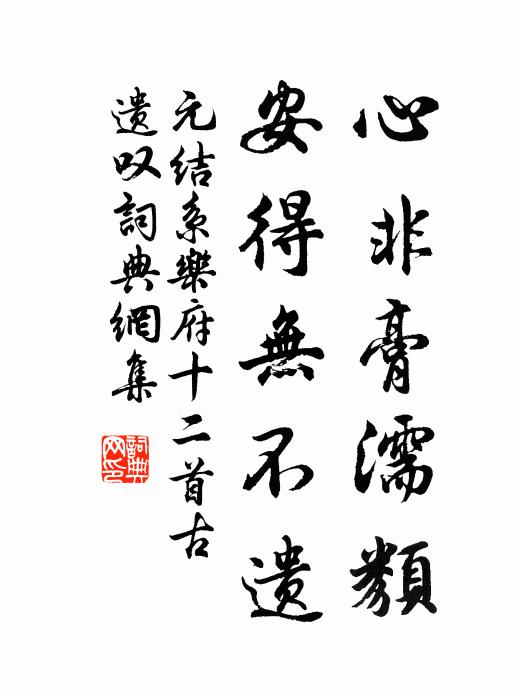 心非膏濡類
安得無不遺
元结系樂府十二首古
遗叹詞典網集
詞典网印